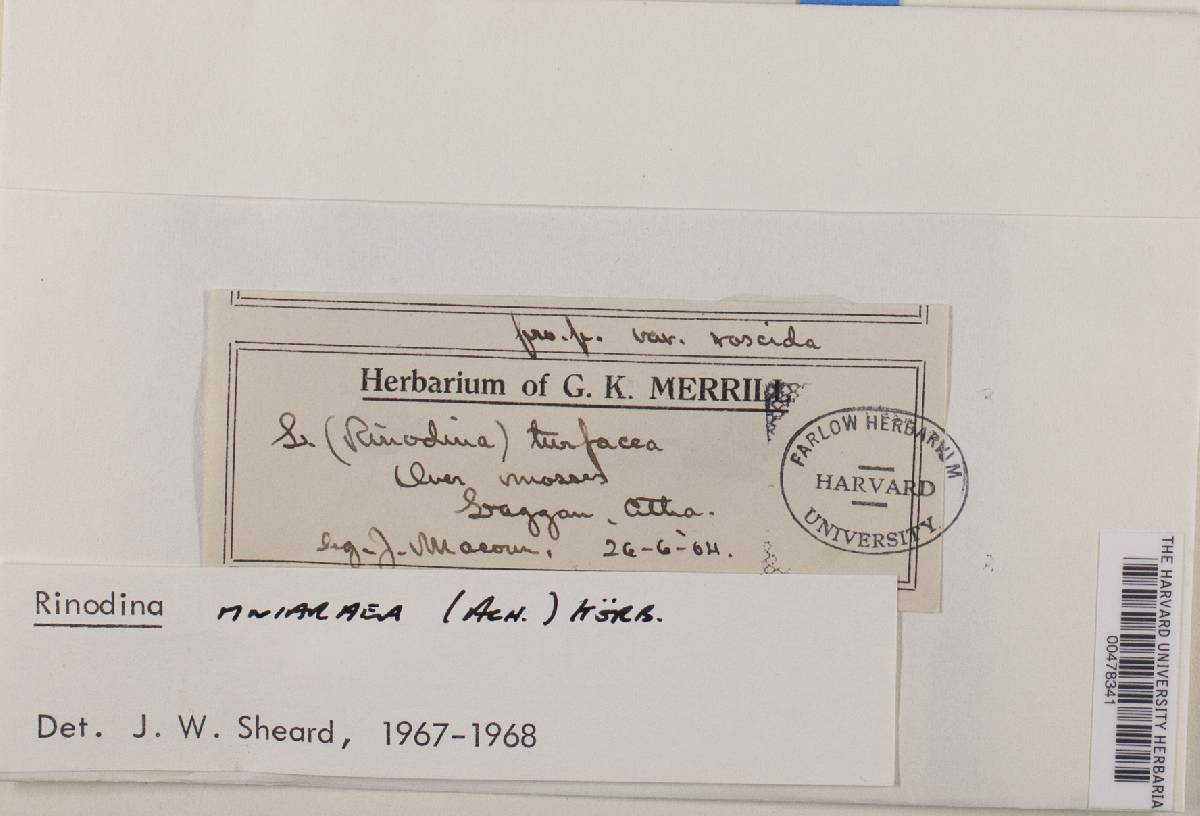 pro. p. var. roscida
Herbarium of G. K. MERRILL
L. (Rinodina) turfacea
Over mosses
Laggan, Atha.
leg. J. Macoun. 26-6-04.
FARLOW HERBARIUM
HARVARD
UNIVERSITY
Rinodina MNIARAEA (ACH.) KÖRB.
Det. J. W. Sheard, 1967-1968
THE HARVARD UNIVERSITY HERBARIA
00478341